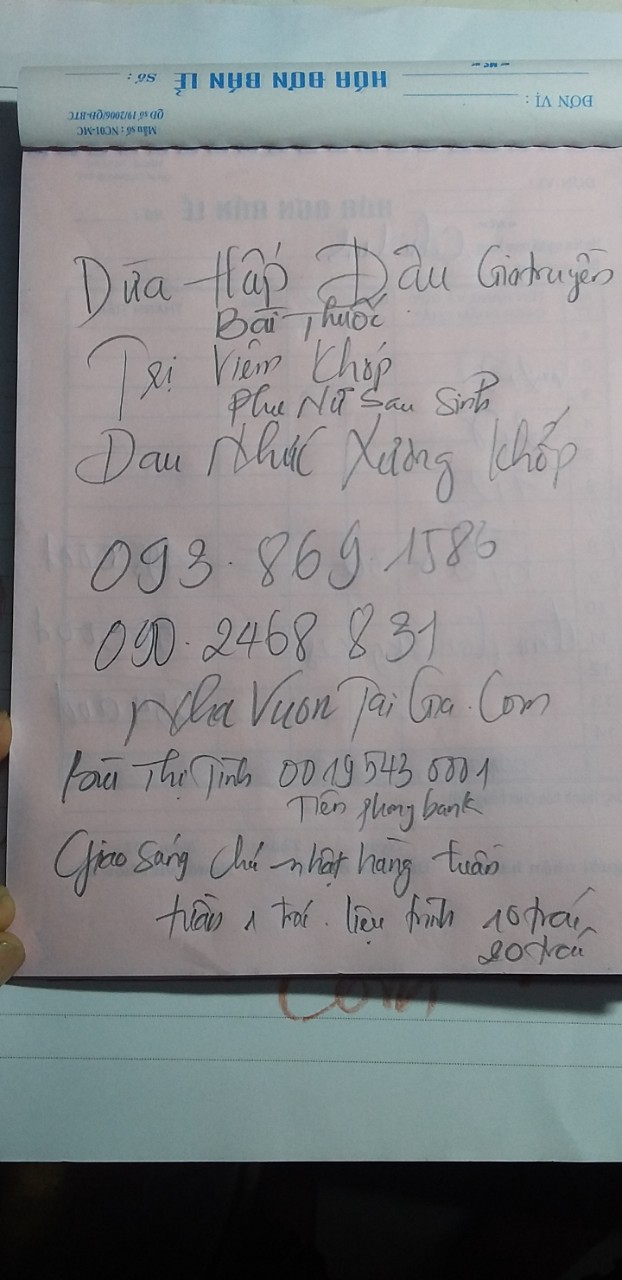 HÓA ĐƠN BÁN LẺ
Số :
ĐƠN VỊ :
Mẫu số : NC01-MC
QĐ số 19/2006/QĐ-BTC
Dừa Hấp Dầu Gia truyền
Bài Thuốc
Trị Viêm Khớp
Phụ Nữ Sau Sinh
Đau Nhức Xương Khớp
093.869.1586
090.2468 831
Nha Vuon Tai Gia.Com
Thị Tình 0019543 0001
Tiên phong bank
Giao sáng chủ nhật hàng tuần
tuần 1 trái. liệu trình 10 trái
20 trái